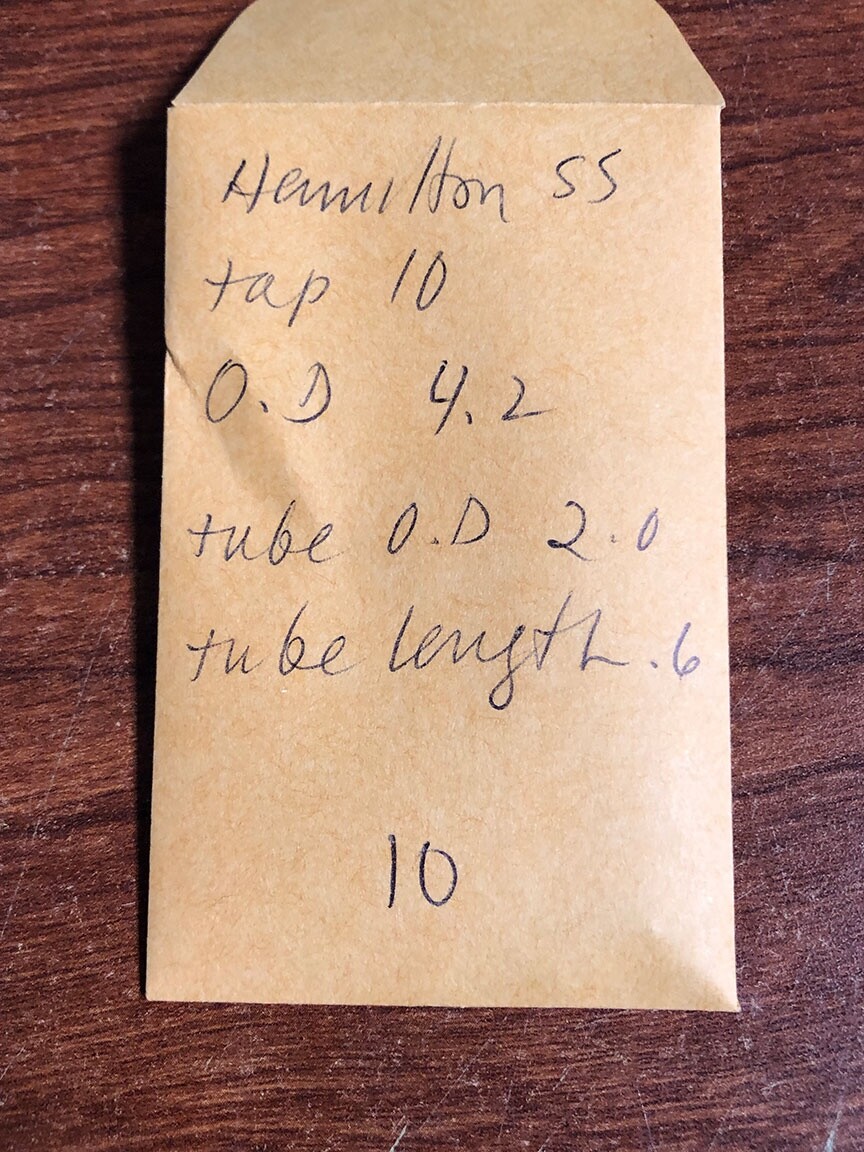 Hamilton SS
tap 10
O.D 4.2
tube O.D 2.0
tube length .6
10